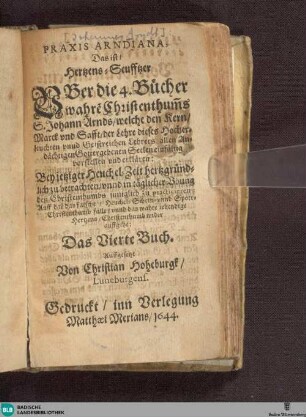 [Johannes Arndt]
PRAXIS ARNDIANA.
Das ist /
Hertzens-Seufftzer
Vber die 4. Bücher
wahrē Christenthums
S. Johann Arnds / welche den Kern /
Marck vnd Safft / der Lehre dieses Hocher-
leuchten vnnd Geistreichen Lehrers, allen An-
dächtigen Gottergebenen
vorstellen vnd erklären:
Bey jetziger Heuchel-Zeit hertzgründ-
lich zu betrachten / vnnd in täglicher Vbung
des Christenthumbs
Auff daß das falsche / Heuchel- Schein- vnnd Spott-
Christenthumb falle / vnnd das wahre lebendige
Hertzens / Christenthumb wider
auffstehe
Das Vierte Buch.
Auffgesetzt
Von Christian Hohburgk /
Luneburgens.
Gedruckt / inn Verlegung
Matthæi Merians / 1644.
BLB
BADISCHE
LANDESBIBLIOTHEK
Baden-Württemberg